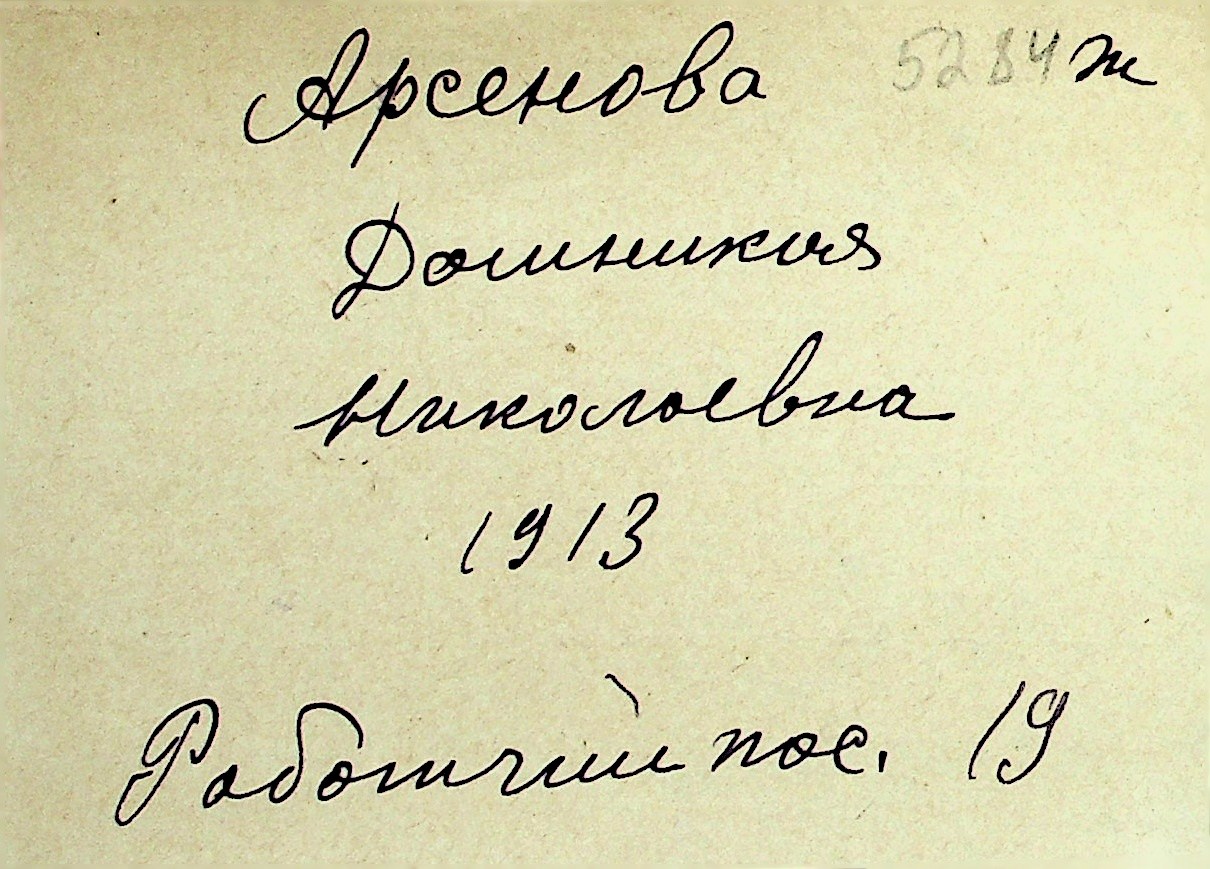 Арсенова 5284 ж
Домникия
Николаевна
1913
Работчий пос. 19